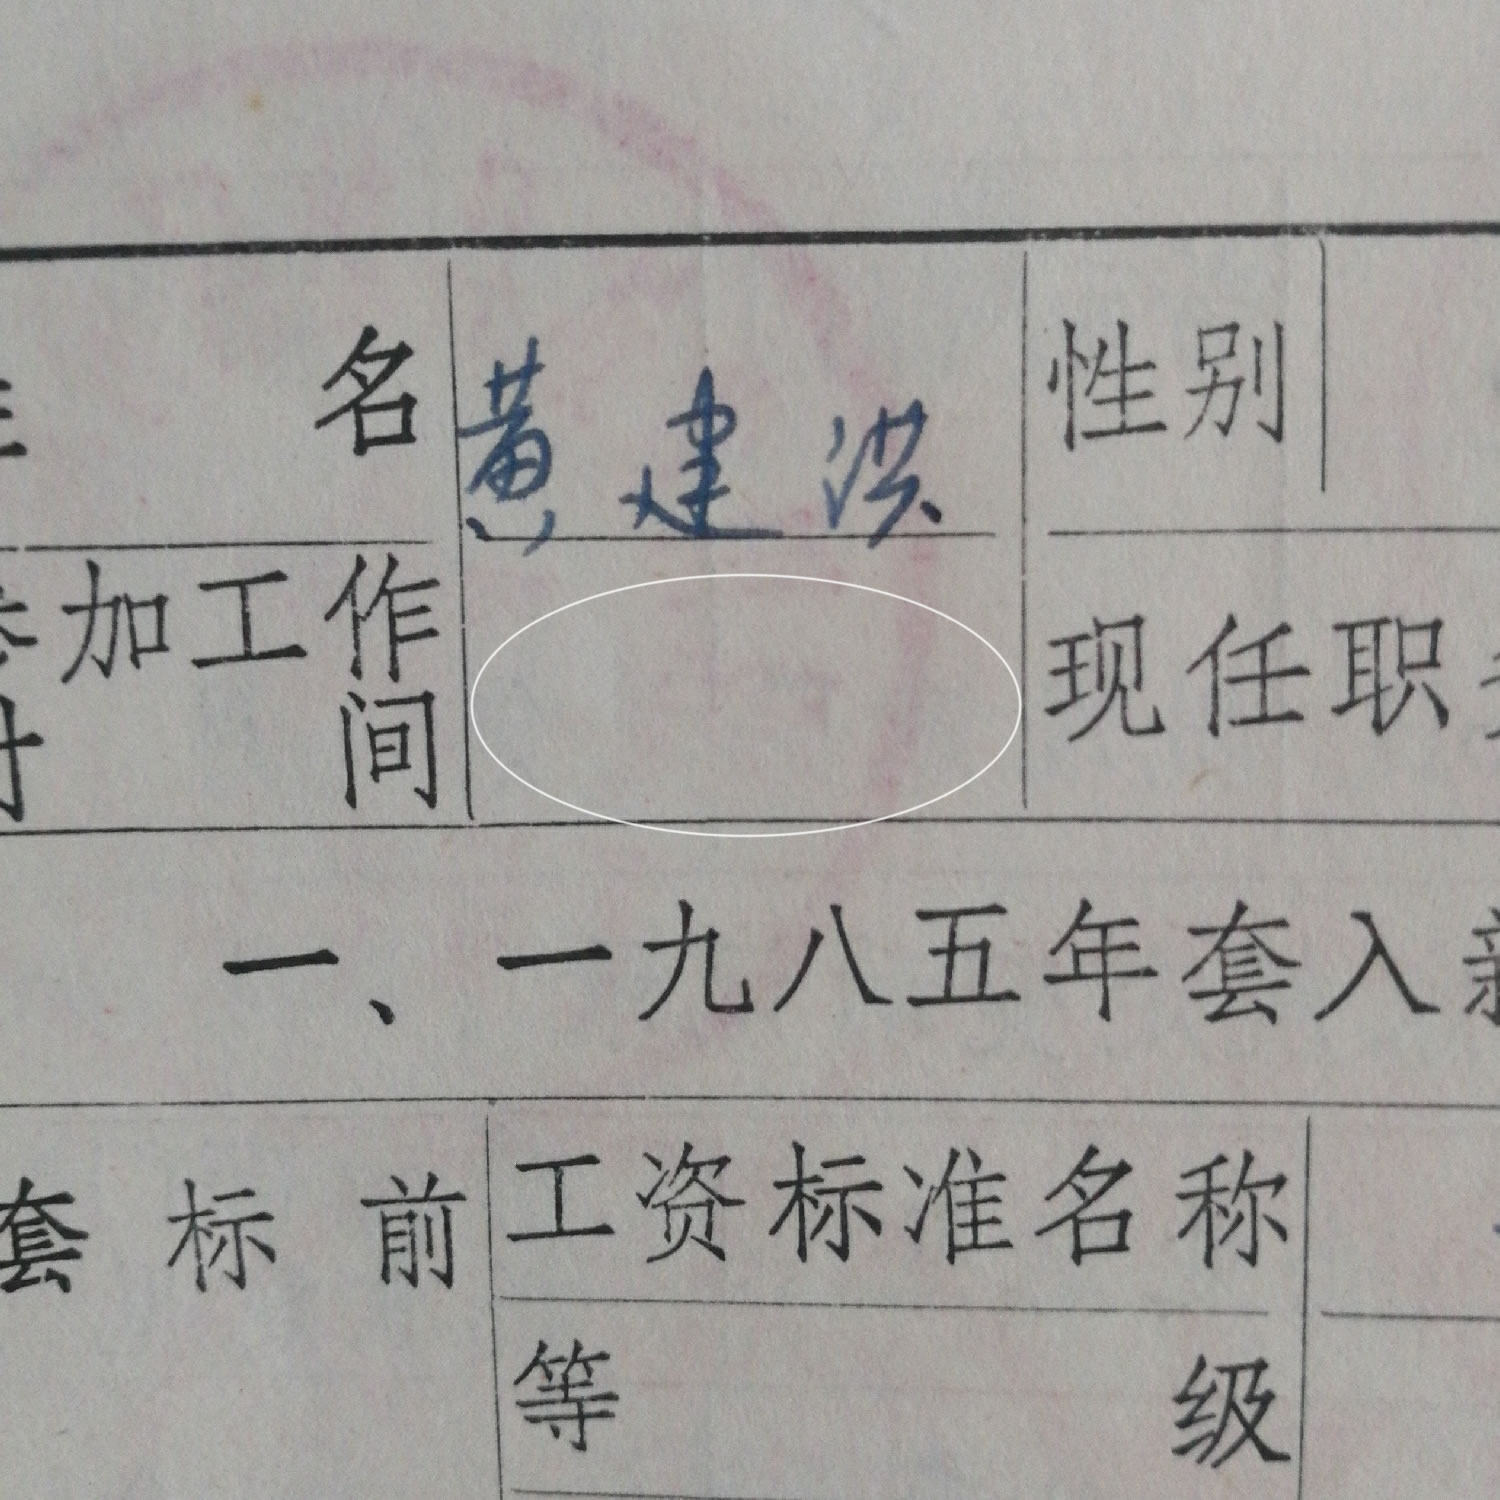 名 黄建洪 性别
加工作 现任职
间
一、一九八五年套入
套标前 工资标准名称
等级